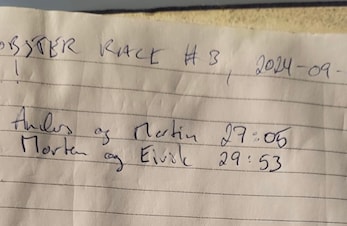 OBSTER RACE #3, 2024-09-
!
Anders og Martin 27:05
Morten og Eivik 29:53